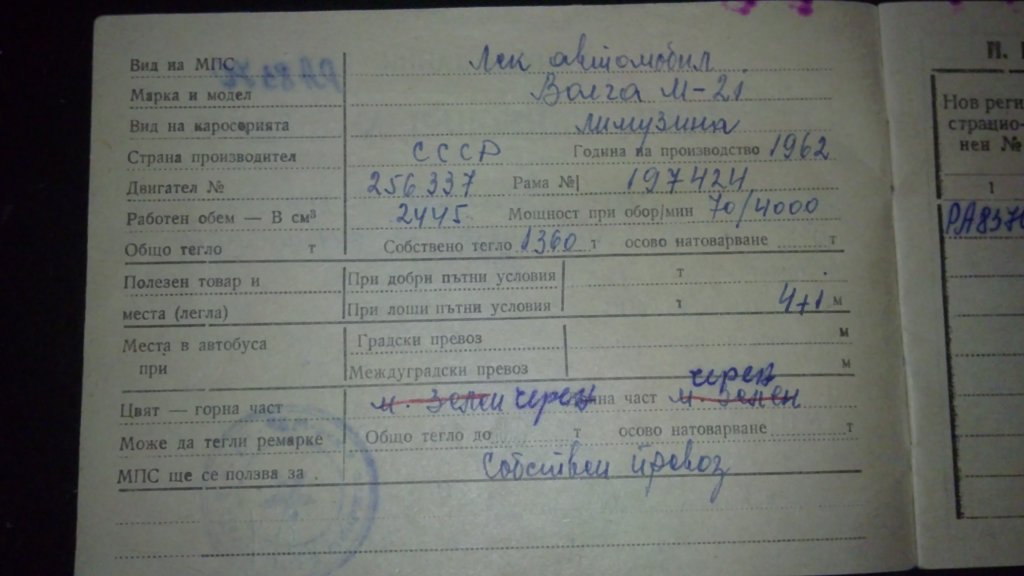 Вид на МПС Лек автомобил
Марка и модел Волга М-21
Вид на каросерията лимузина
Страна производител СССР Година на производство 1962
Двигател № 256337 Рама № 197424
Работен обем — В см³ 2445 Мощност при обор/мин 70/4000
Общо тегло т Собствено тегло 1360 т осово натоварване т
Полезен товар и При добри пътни условия т
места (легла) При лоши пътни условия т 4+1 м
Места в автобуса Градски превоз м
при Междуградски превоз м
черен
Цвят — горна част м. Зелен черен на част м. Зелен
Може да тегли ремарке Общо тегло до т осово натоварване т
МПС ще се ползва за Собствен превоз
Нов реги-
страцио-
нен №
1
РА8376